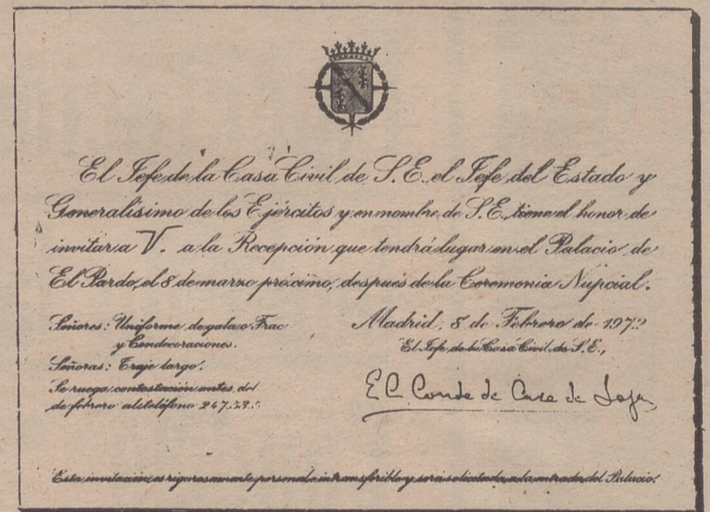 El Jefe de la Casa Civil de S.E. el Jefe del Estado y
Generalísimo de los Ejércitos y en nombre de S.E., tiene el honor de
invitar a V. a la Recepción que tendrá lugar en el Palacio de
El Pardo, el 8 de marzo próximo, después de la Ceremonia Nupcial.
Señores: Uniforme de gala o Frac
y Condecoraciones.
Señoras: Traje largo.
Se ruega contestación antes del
de febrero al teléfono 247.
Madrid, 8 de Febrero de 1972
El Jefe de la Casa Civil de S.E.,
El Conde de Casa de Loja
Esta invitación es rigurosamente personal e intransferible y será solicitada a la entrada del Palacio.